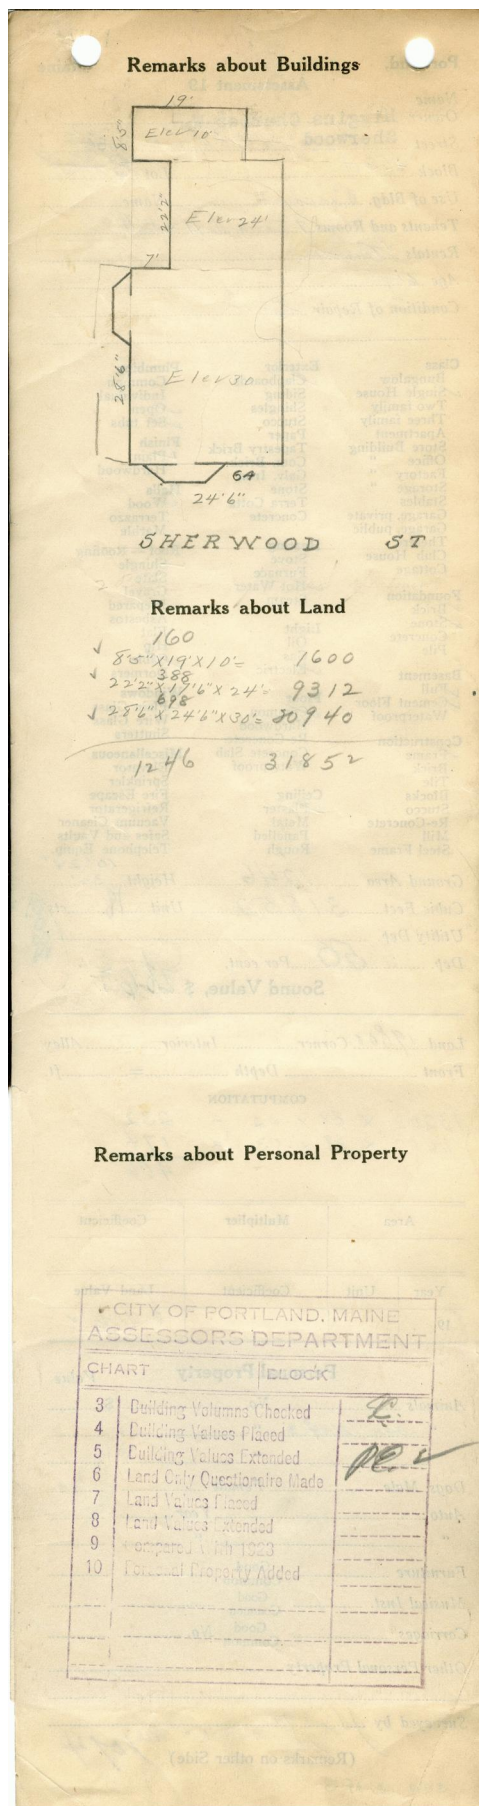 Remarks about Buildings
19'
8'5"
Elev 10'
22'2"
Elev 24'
7'
28'6"
Elev 30
64
24'6"
SHERWOOD ST
Remarks about Land
160
8'5" X 19' X 10' = 1600
388
22'2" X 17'6" X 24' = 9312
698
28'6" X 24'6" X 30' = 20940
1246 31852
Remarks about Personal Property
CITY OF PORTLAND, MAINE
ASSESSORS DEPARTMENT
CHART BLOCK
3 Building Volumns Checked
4 Building Values Placed
5 Building Values Extended
6 Land Only Questionaire Made
7 Land Values Placed
8 Land Values Extended
9 Compared With 1923
10 Personal Property Added